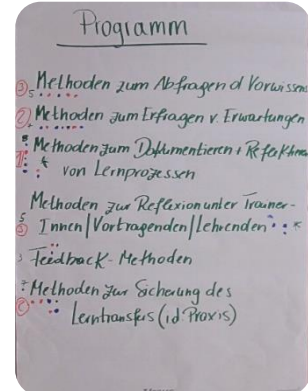 Programm
③ Methoden zum Abfragen d Vorwissens
5
② Methoden zum Erfragen v. Erwartungen
Methoden zum Dokumentieren + Reflektieren
von Lernprozessen
Methoden zur Reflexion unter Trainer-
5
Innen/Vortragenden/Lehrenden
3 Feedback-Methoden
7 Methoden zur Sicherung des
Lerntransfers (i d Praxis)